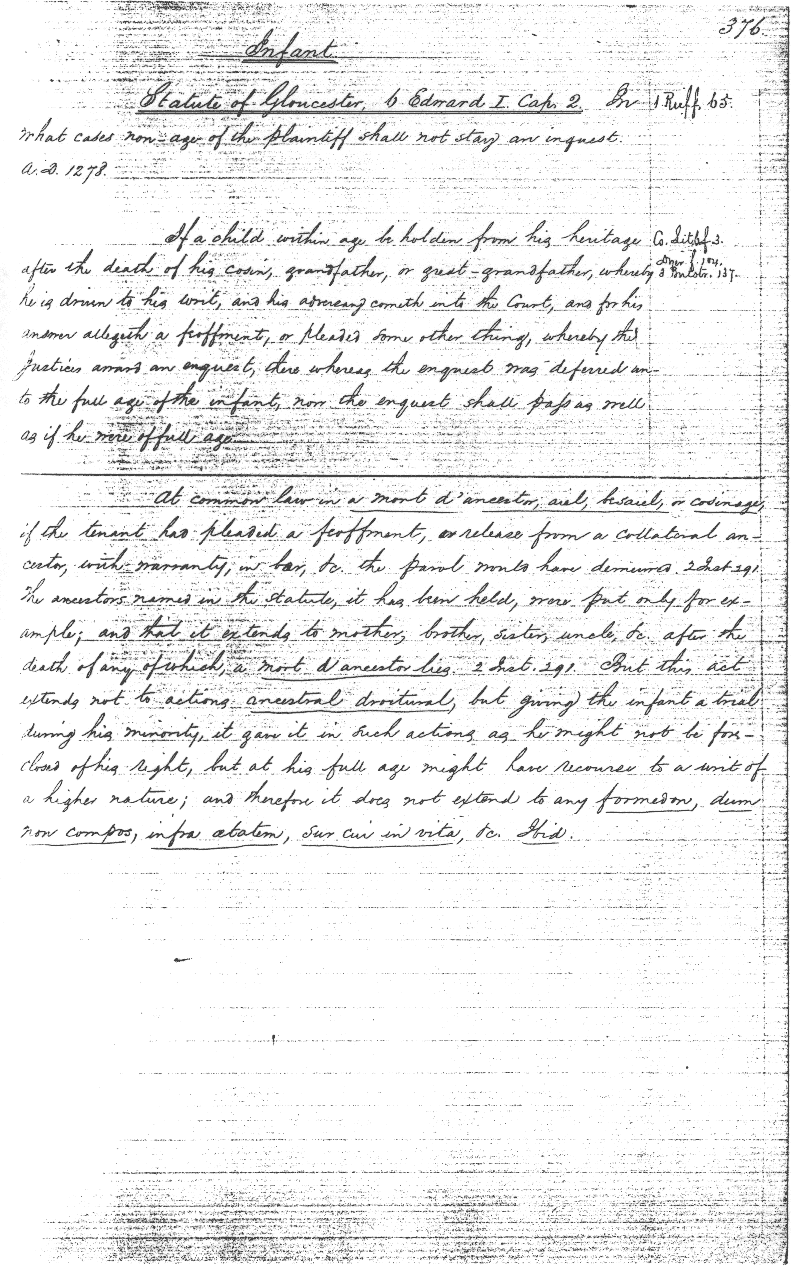 376.
Infant
Statute of Gloucester, 6 Edward I. Cap. 2. In 1 Ruff. 65.
what cases non-age of the plaintiff shall not stay an inquest.
A.D. 1278.
If a child within age be holden from his heritage Co. Lit.
after the death of his cosin, grandfather, or great-grandfather, whereby Dyer f. 104.
he is driven to his writ, and his adversary cometh into the Court, and for his 3 137.
answer allegeth a feoffment, or pleaded some other thing, whereby the
Justices award an enquest, there whereas the enquest was deferred un-
to the full age of the infant, now the enquest shall pass as well
as if he were of full age.
At common law in a mort d'ancestor, aiel, besaiel, or cosinage,
if the tenant had pleaded a feoffment, or release from a collateral an-
cestor, with warranty, in bar, &c. the parol would have demurred. 2 Inst. 291.
The ancestors named in the statute, it has been held, were put only for ex-
ample; and that it extends to mother, brother, sister, uncle, &c. after the
death of any of which, a mort d'ancestor lies. 2 Inst. 291. But this act
extends not to actions ancestral droitural, but giving the infant a trial
during his minority, it gave it in such actions as he might not be fore-
closed of his right, but at his full age might have recourse to a writ of
a higher nature; and therefore it does not extend to any formedon, dum
non compos, infra ætatem, sur cui in vita, &c. Ibid.